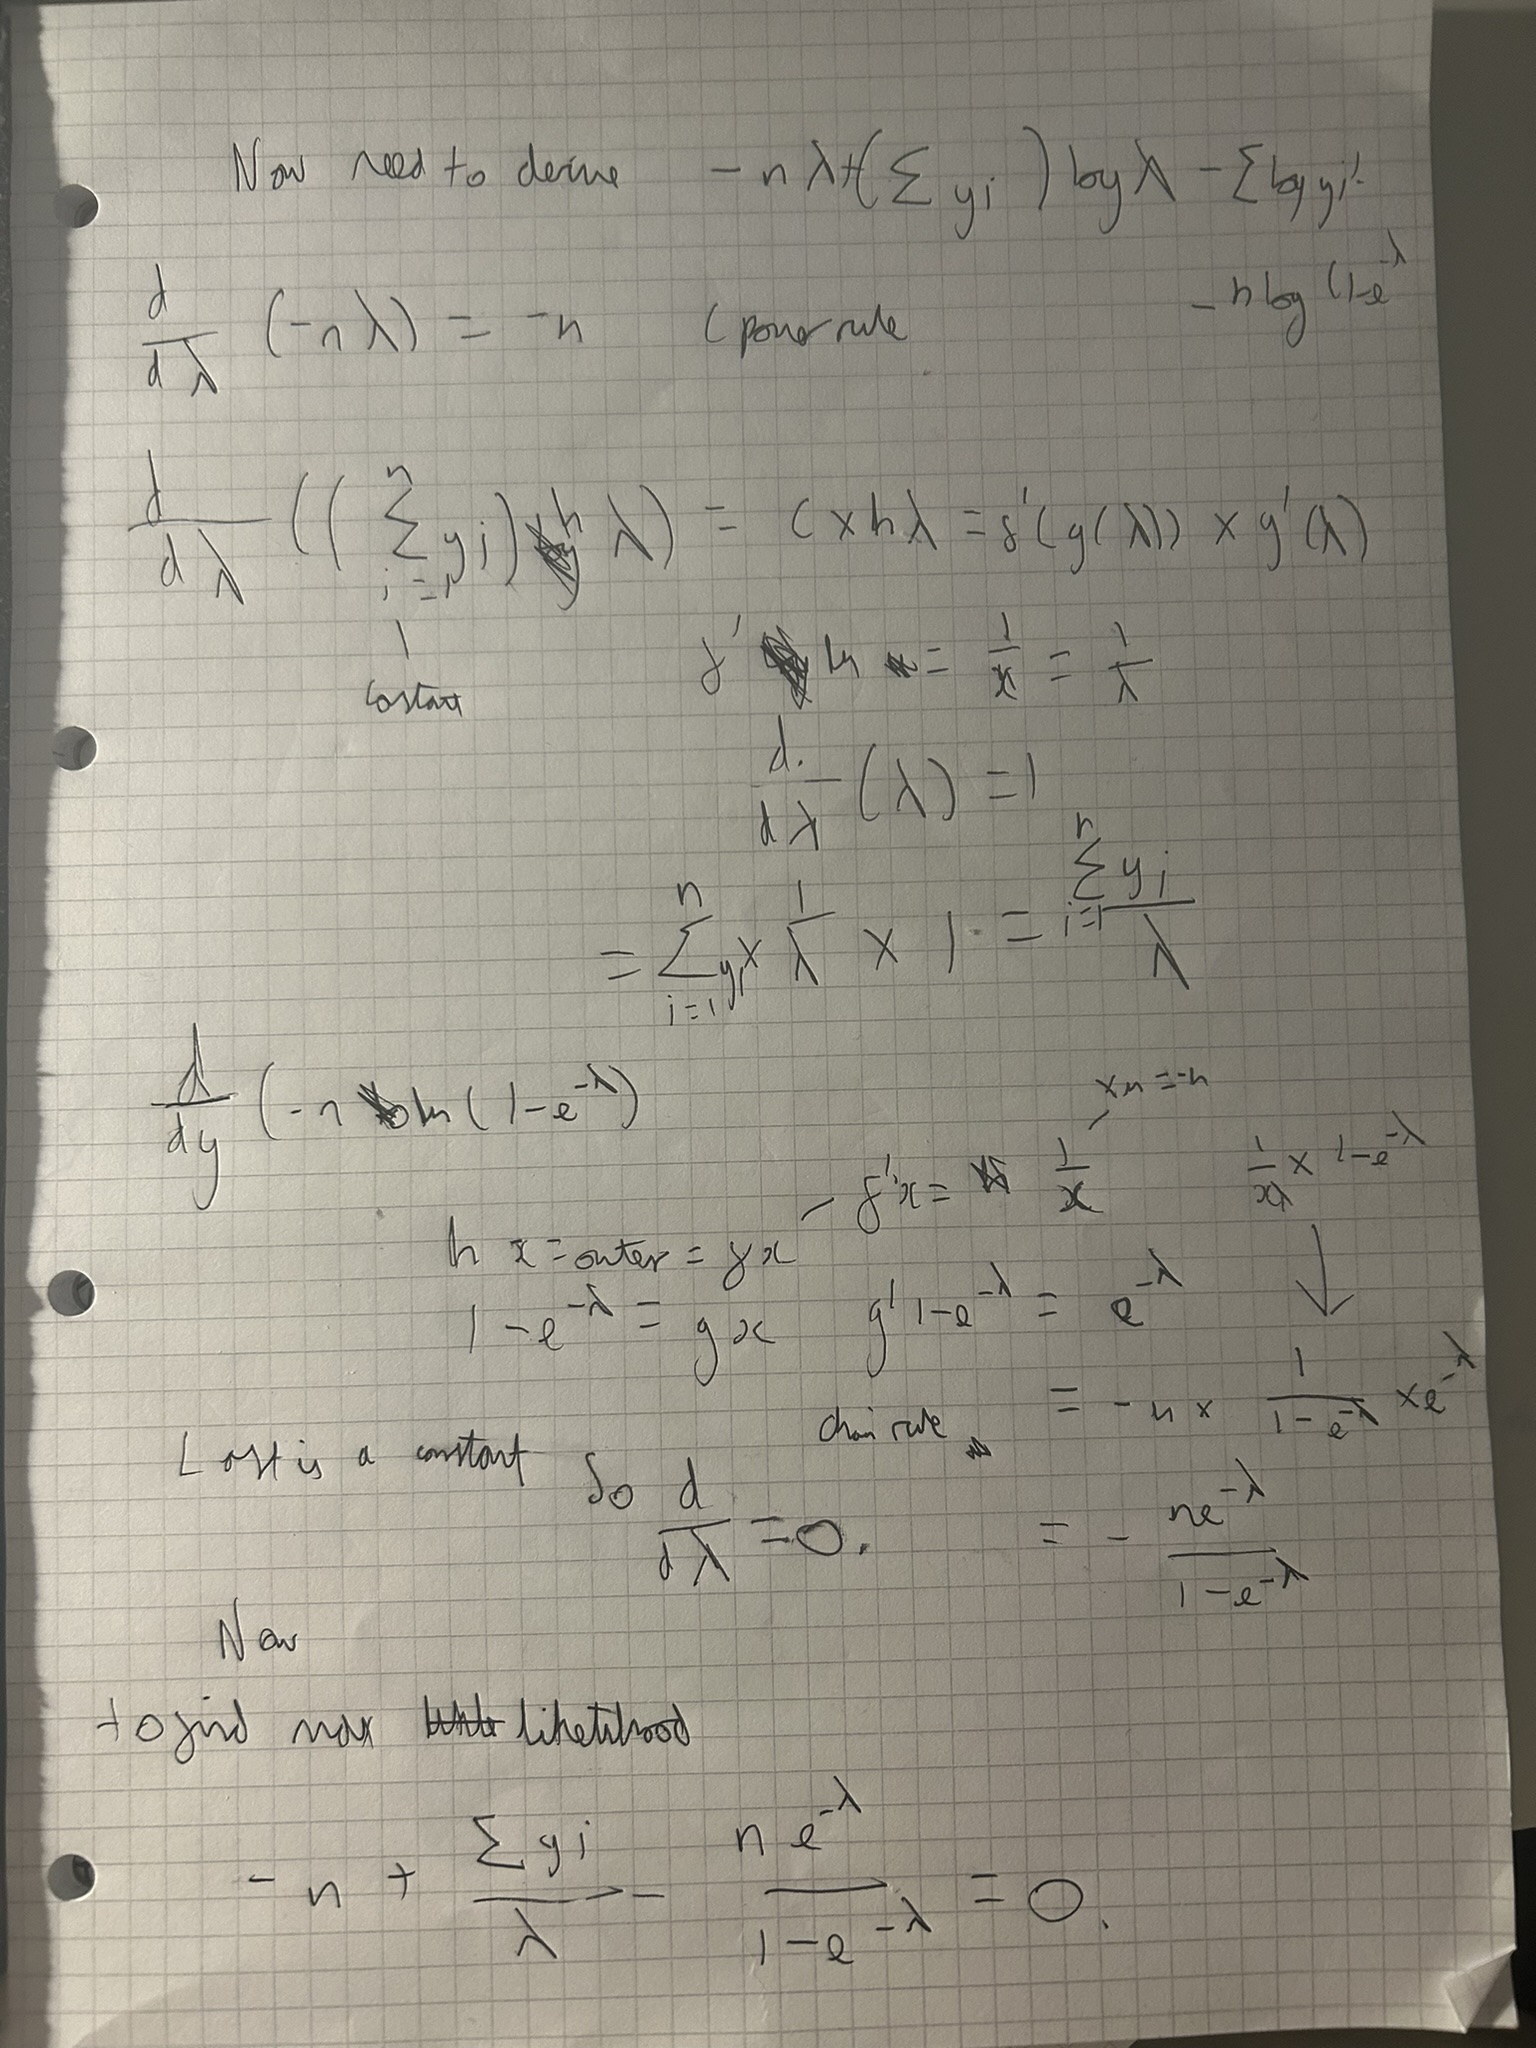 Now need to derive -nλ+(Σ yi) log λ - Σ log yi!
- n log (1-e^-λ
d/dλ (-nλ) = -n (power rule
d/dλ ((Σ_{i=1}^n yi) ln λ) = C x ln λ = f'(g(λ)) x g'(λ)
constant
f' ln = 1/x = 1/λ
d/dλ (λ) = 1
= Σ_{i=1}^n yi x 1/λ x 1 = Σ_{i=1}^n yi / λ
d/dy (-n ln(1-e^-λ)
xn = -n
ln x = outer = fx - f'x = 1/x 1/x x 1-e^-λ
1-e^-λ = gx g' 1-e^-λ = e^-λ
chain rule = -n x 1/(1-e^-λ) x e^-λ
Last is a constant so d/dλ = 0. = - ne^-λ/(1-e^-λ)
Now
to find max likelihood
-n + Σ yi/λ - n e^-λ/(1-e^-λ) = 0.